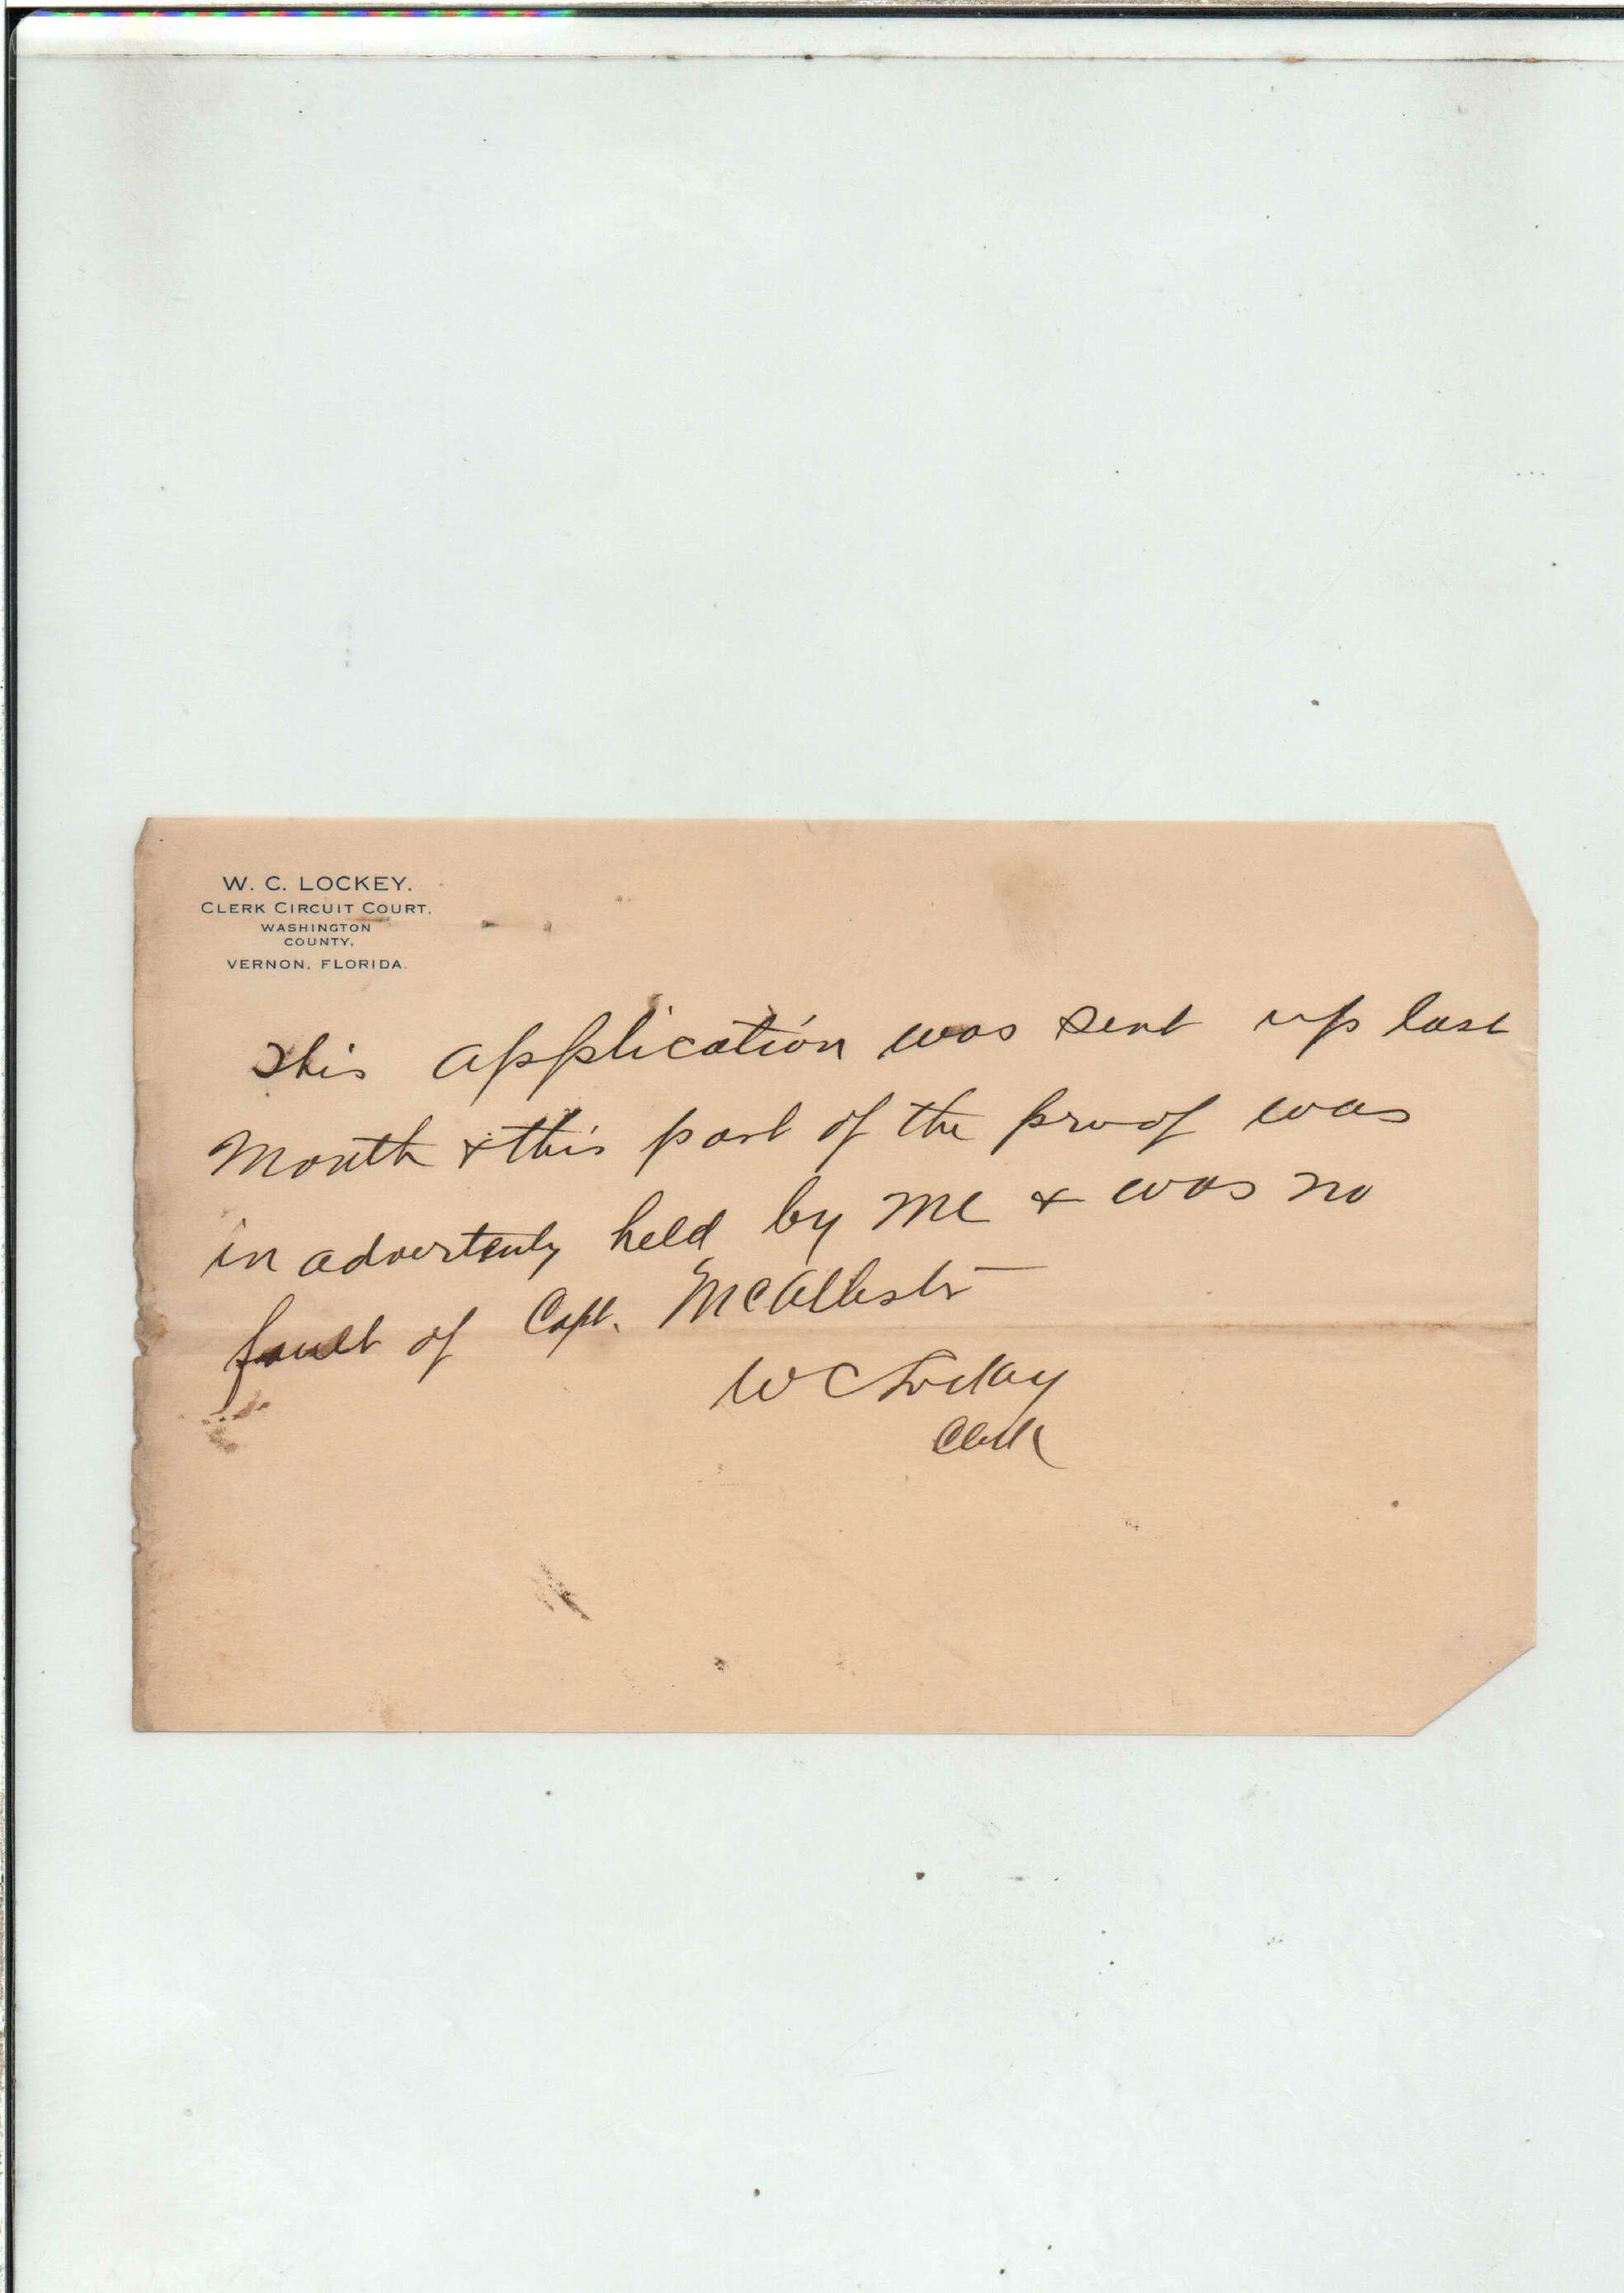 W. C. LOCKEY.
CLERK CIRCUIT COURT.
WASHINGTON
COUNTY,
VERNON, FLORIDA.
This application was sent up last
Month & this part of the proof was
in advertently held by me & was no
fault of Capt. McAllister
W C Lockey
Clerk